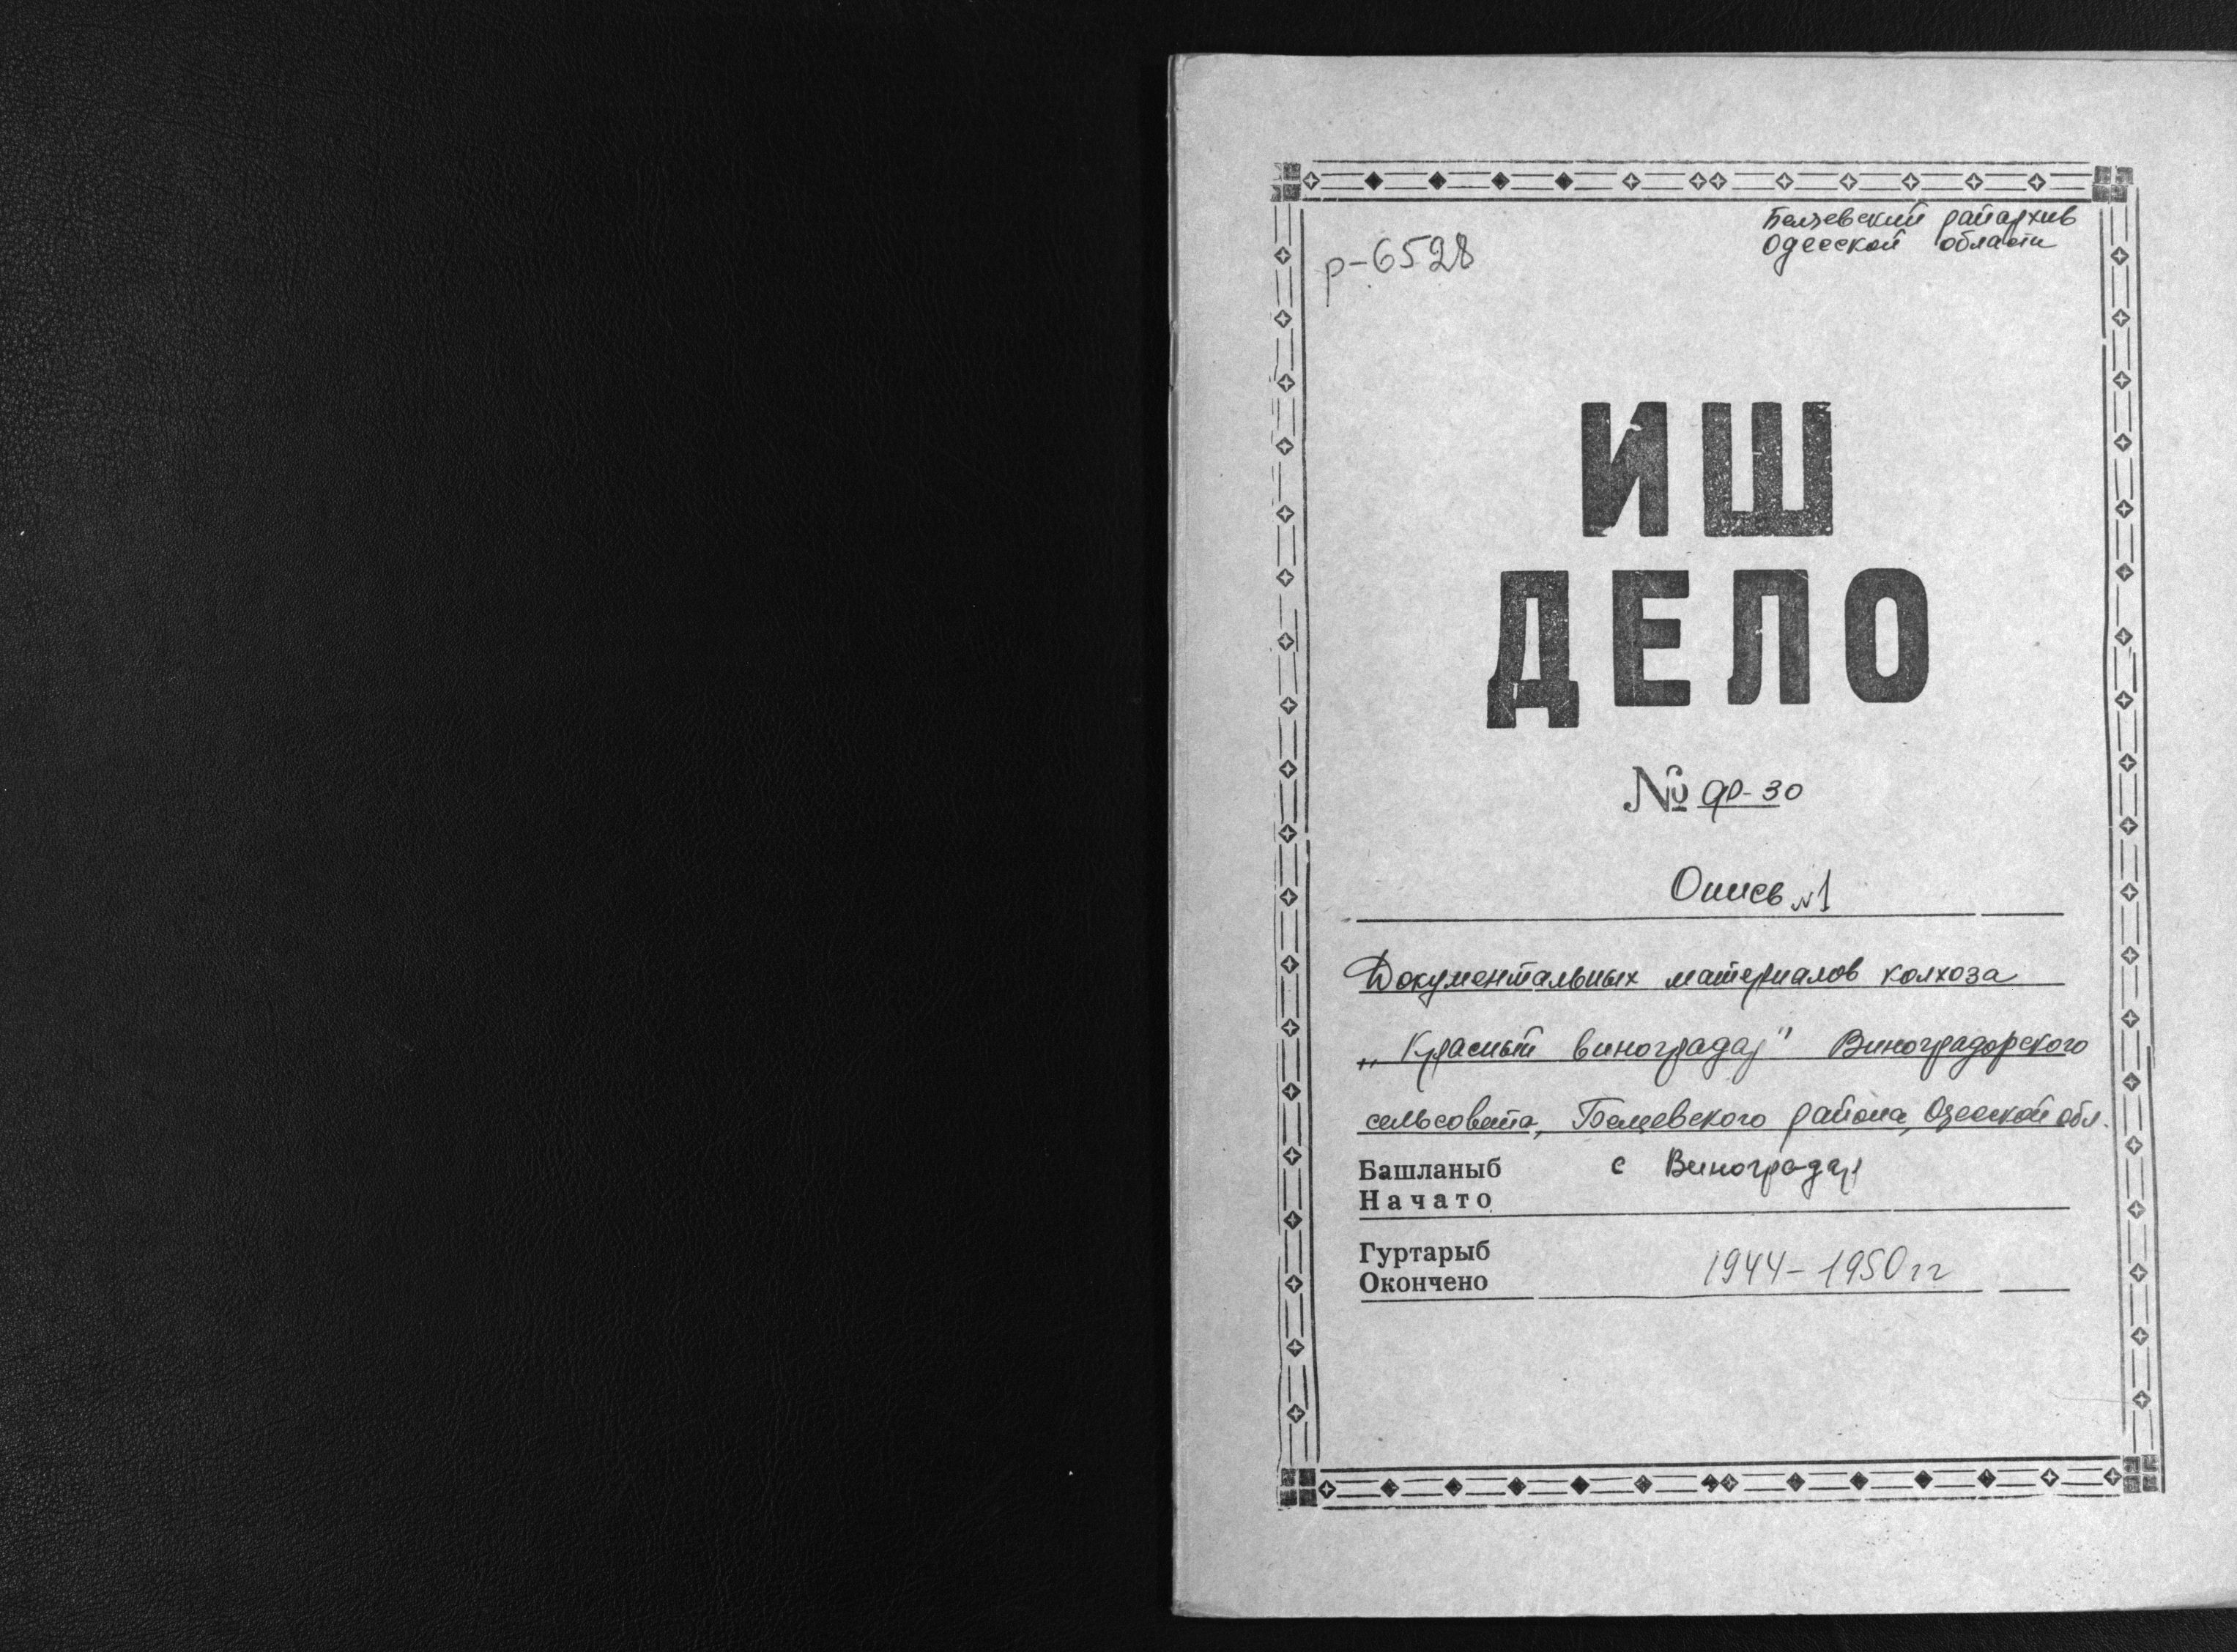 Беляевский райархив
Одесской области
р-6528
ИШ
ДЕЛО
№ ф-30
Опись №1
Документальных материалов колхоза
„Красный виноградарь" Виноградорского
сельсовета, Беляевского района, Одесской обл.
Башланыб с Виноградарь
Начато
Гуртарыб
Окончено 1944-1950 гг